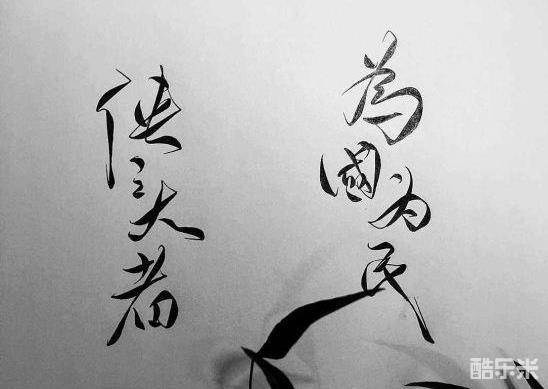 為國为民
侠之大者
酷乐米